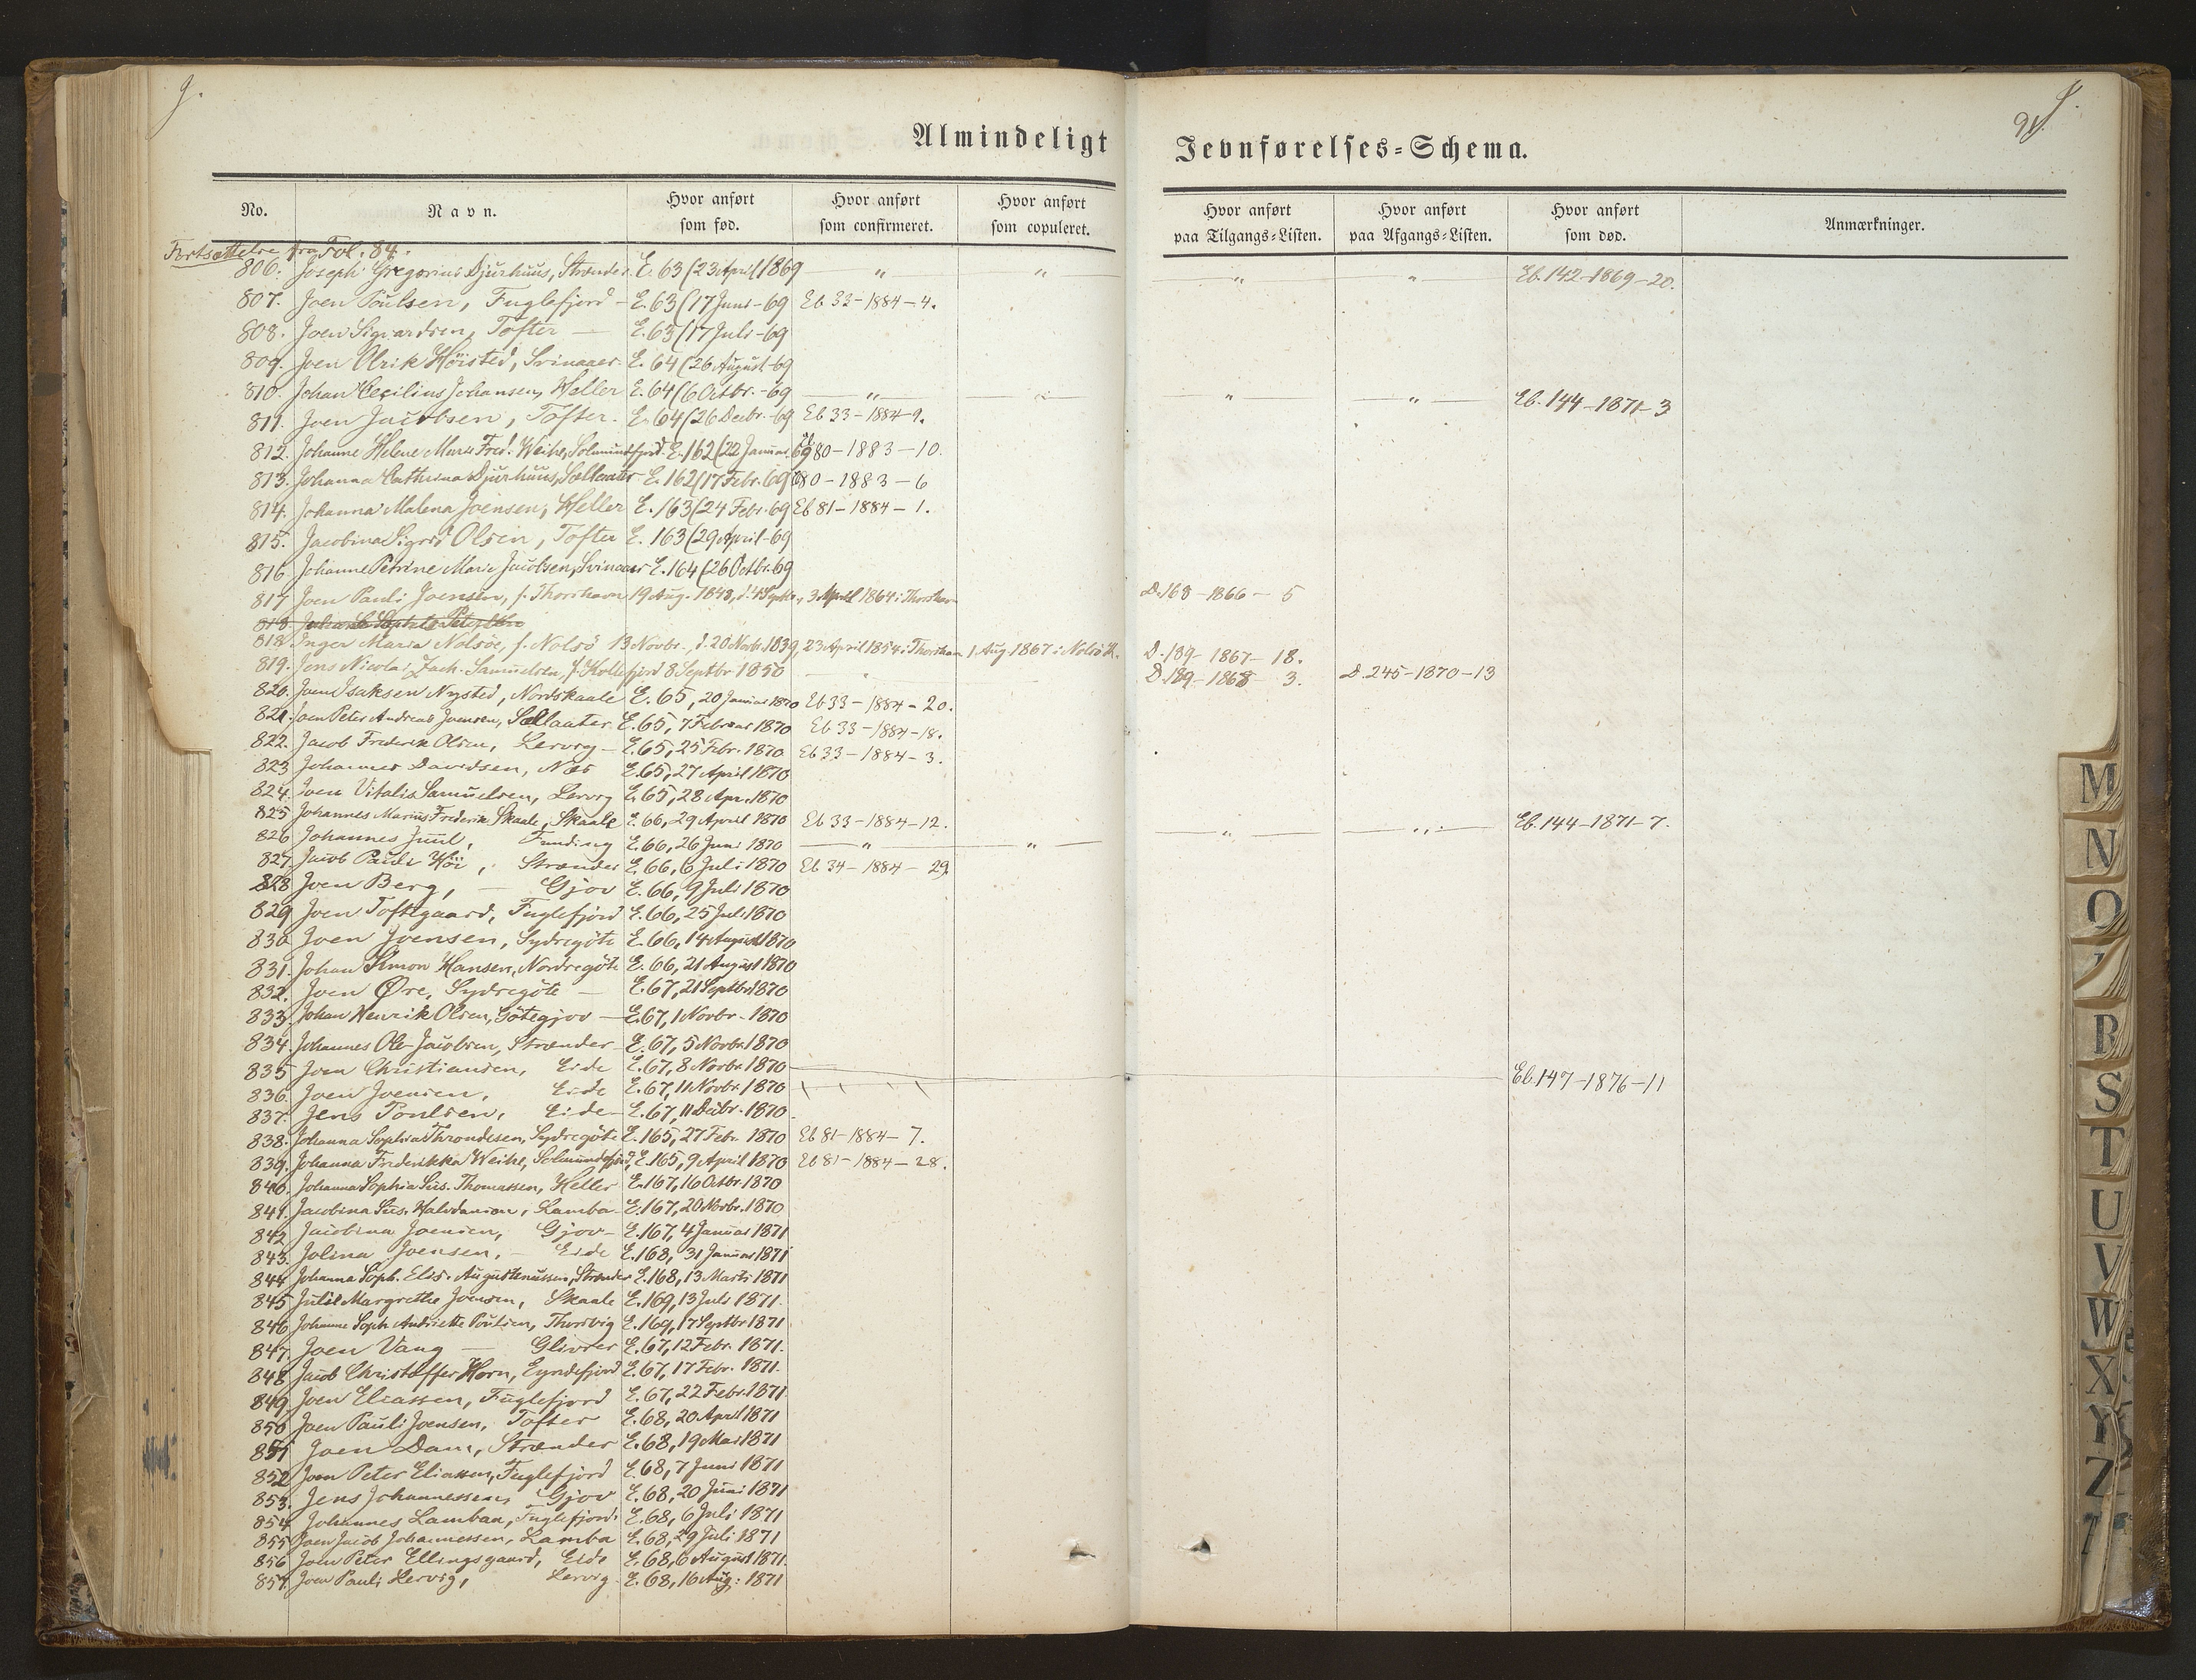 J.
J.
91.
Almindeligt Jevnførelses=Schema.
No. Navn. Hvor anført som fød. Hvor anført som confirmeret. Hvor anført som copuleret. Hvor anført paa Tilgangs=Listen. Hvor anført paa Afgangs=Listen. Hvor anført som død. Anmærkninger.
Fortsættelse fra Fol. 84.
806. Joseph Gregorius Djurhuus, Strænder. E. 63 (23 April 1869 " " " " Eb. 142-1869-20.
807. Joen Poulsen, Fuglefjord - E. 63 (17 Juni -69 Eb 33-1884-4.
808. Joen Sigvardsen, Tofter — E. 63 (17 Juli -69
809. Joen Ulrik Höisted, Svinaaer. E. 64 (26 August -69
810. Johan Cecilius Johansen, Heller E. 64 (6 Octbr. -69 " " " " Eb. 144-1871-3
811. Joen Jacobsen, Tofter. E. 64 (26 Decbr. -69 Eb 33-1884-9.
812. Johanne Helene Marie Fred. Weihe, Solmundefjord E. 162 (22 Januar. 69 Eb 80-1883-10.
813. Johanna Cathrina Djurhuus, Sælletræter E. 162 (17 Febr. 69 Eb 80-1883-6
814. Johanna Malena Joensen, Heller E. 163 (24 Febr. 69 Eb 81-1884-1.
815. Jacobina Sigrid Olsen, Tofter E. 163 (29 April -69
816. Johanne Petrine Marie Jacobsen, Svinaaer E. 164 (26 Octbr. 69
817 Joen Pauli Joensen, f. Thorshavn 19 Aug. 1848, d. 4 Septbr., 3 April 1864 i Thorshavn D. 168-1866-5
818.
818. Inger Maria Nolsöe, f. Nolsö 13 Novbr., d. 20 Novbr. 1839, 23 April 1854 i Thorshavn 1 Aug. 1867 i Nolsö K. D. 189-1867-18.
819. Jens Nicolai Zach. Samuelsen, f. Kollefjord 8 Septbr 1850 D. 189-1868 3. D. 245-1870-13
820. Joen Isaksen Nysted, Nordskaale E. 65, 20 Januar 1870 Eb 33-1884-20.
821. Joen Peter Andreas Joensen, Sællaater. E. 65, 7 Februar 1870 Eb 33-1884-18.
822. Jacob Frederik Olsen, Lervig — E. 65, 25 Febr. 1870 Eb 33-1884-3.
823 Johannes Davidsen, Næs E. 65, 27 April 1870
824. Joen Vitalis Samuelsen, Lervig E. 65, 28 Apr. 1870
825 Johannes Marius Frederik Skaale, Skaale E. 66, 29 April 1870 Eb 33-1884-12.
826 Johannes Juul, Funding E. 66, 26 Juni 1870 " " " " Eb. 144-1871-7.
827. Jacob Pauli Höi, Strænder E. 66, 6 Juli 1870 Eb 34-1884-29.
828 Joen Berg, — Gjov E. 66, 9 Juli 1870
829 Joen Toftegaard, Fuglefjord E. 66, 25 Juli 1870
830 Joen Joensen, Sydregöte E. 66, 14 August 1870
831. Johan Simon Hansen, Nordregöte E. 66, 21 August 1870
832. Joen Øre, Sydregöte — E. 67, 21 Septbr 1870
833. Johan Henrik Olsen, Götegjov — E. 67, 1 Novbr. 1870
834. Johannes Ole Jacobsen, Strænder E. 67, 5 Novbr. 1870
835 Joen Christiansen, Eide E. 67, 8 Novbr. 1870
836. Joen Joensen, Eide E. 67, 11 Novbr. 1870 Eb. 147-1876-11
837. Jens Poulsen, Eide — E. 67, 11 Decbr. 1870
838. Johanna Sophia Throndesen, Sydregöte E. 165, 27 Febr. 1870 Eb 81-1884-7.
839. Johanna Frederikka Weihe, Solmundefjord, E. 165, 9 April 1870 Eb 81-1884-28.
840. Johanna Sophia Sus. Thomassen, Heller E. 167, 16 Octbr. 1870
841. Jacobina Sus. Halvdansen, Lamba E. 167, 20 Novbr. 1870
842 Jacobina Joensen, Gjov — E. 167, 4 Januar 1871
843. Jolina Joensen, — Eide E. 168, 31 Januar 1871
844. Johanna Soph. Elis. Augustinussen, Strænder E. 168, 13 Marts 1871
845 Julie Margrethe Joensen, Skaale E. 169, 13 Juli 1871.
846 Johanne Soph. Andriette Poulsen, Thorsvig E. 169, 17 Septbr 1871
847. Joen Vang — Glivrer E. 67, 12 Febr. 1871.
848 Jacob Christoffer Horn, Eyndefjord E. 67, 17 Febr. 1871.
849. Joen Eliassen, Fuglefjord E. 67, 22 Febr. 1871.
850 Joen Pauli Joensen, Tofter E. 68, 20 April 1871
851 Joen Dam, Strænder E. 68, 19 Mai 1871
852 Joen Peter Eliassen, Fuglefjord E. 68, 7 Juni 1871
853. Jens Johannessen, Gjov E. 68, 20 Juni 1871
854 Johannes Lambaa, Fuglefjord E. 68, 6 Juli 1871
855 Joen Jacob Johannessen, Lamba E. 68, 29 Juli 1871
856 Joen Peter Ellingsgaard, Eide E. 68, 6 August 1871.
857. Joen Pauli Lervig, Lervig. E. 68, 16 Aug: 1871
M
N
O
R
S
T
U
V
W
X
Y
Z